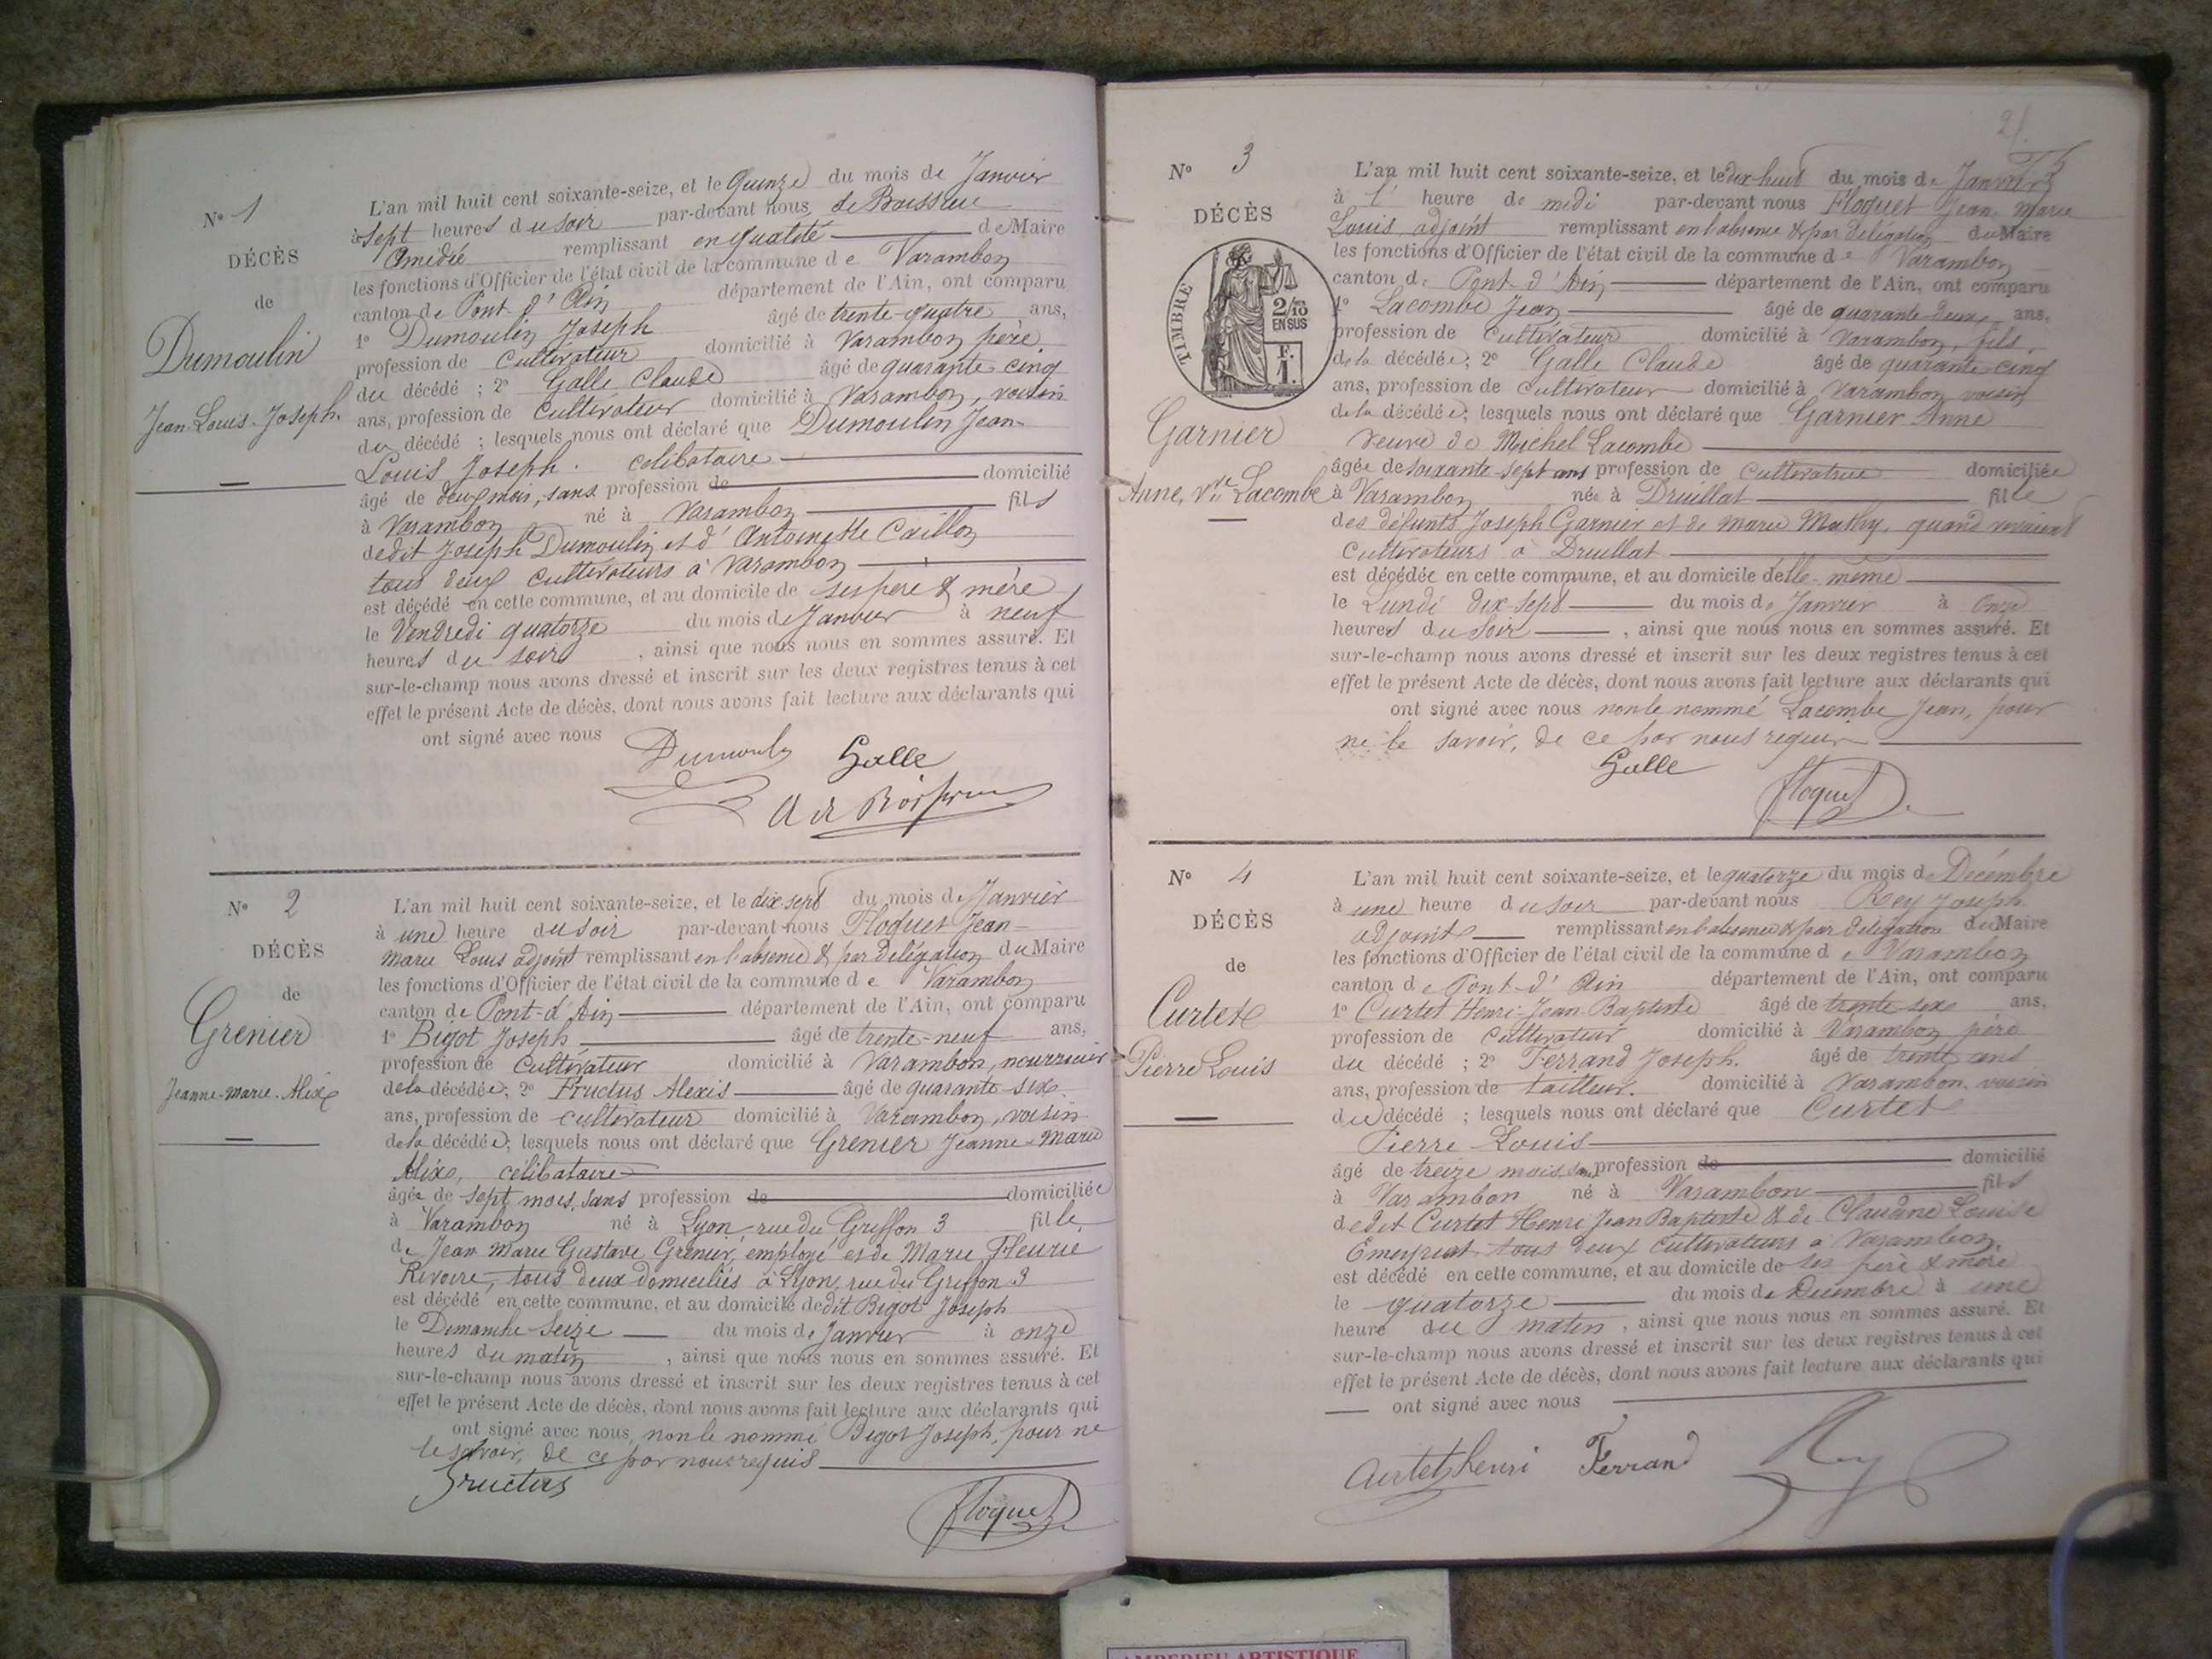 N° 1
DÉCÈS
de
Dumoulin
Jean-Louis-Joseph.
L'an mil huit cent soixante-seize, et le Quinze du mois de Janvier
à sept heures du soir par-devant nous, de Boissieu
Amédée remplissant en qualité de Maire
les fonctions d'Officier de l'état civil de la commune de Varambon
canton de Pont d'Ain département de l'Ain, ont comparu
1° Dumoulin Joseph âgé de trente-quatre ans,
profession de Cultivateur domicilié à Varambon père
du décédé ; 2° Galle Claude âgé de quarante-cinq
ans, profession de Cultivateur domicilié à Varambon, voisin
du décédé ; lesquels nous ont déclaré que Dumoulin Jean-
Louis Joseph. célibataire
âgé de deux mois, sans profession de domicilié
à Varambon né à Varambon fils
dedit Joseph Dumoulin et d'Antoinette Caillon
tous deux cultivateurs à Varambon
est décédé en cette commune, et au domicile de ses père & mère
le Vendredi quatorze du mois de Janvier à neuf
heures du soir, ainsi que nous nous en sommes assuré. Et
sur-le-champ nous avons dressé et inscrit sur les deux registres tenus à cet
effet le présent Acte de décès, dont nous avons fait lecture aux déclarants qui
ont signé avec nous
Dumoulin Galle
A de Boissieu
N° 2
DÉCÈS
de
Grenier
Jeanne-Marie-Alix
L'an mil huit cent soixante-seize, et le dix-sept du mois de Janvier
à une heure du soir par-devant nous Floquet Jean-
Marie Louis adjoint remplissant en l'absence & par Délégation du Maire
les fonctions d'Officier de l'état civil de la commune de Varambon
canton de Pont-d'Ain département de l'Ain, ont comparu
1° Bigot Joseph âgé de trente-neuf ans,
profession de Cultivateur domicilié à Varambon, nourricier
de la décédée; 2° Fructus Alexis âgé de quarante-six
ans, profession de cultivateur domicilié à Varambon, voisin
de la décédée; lesquels nous ont déclaré que Grenier Jeanne-Marie
Alix, célibataire
âgée de sept mois, sans profession de domiciliée
à Varambon né à Lyon rue du Griffon 3 fille
de Jean Marie Gustave Grenier, employé et de Marie Fleurie
Rivoire, tous deux domiciliés à Lyon, rue du Griffon 3
est décédé en cette commune, et au domicile dedit Bigot Joseph
le Dimanche seize du mois de Janvier à onze
heures du matin, ainsi que nous nous en sommes assuré. Et
sur-le-champ nous avons dressé et inscrit sur les deux registres tenus à cet
effet le présent Acte de décès, dont nous avons fait lecture aux déclarants qui
ont signé avec nous, non le nommé Bigot Joseph, pour ne
le savoir, de ce par nous requis
Fructus
Floquet
2
N° 3
DÉCÈS
TIMBRE
2/10
EN SUS
F.
1.
Garnier
Anne, Vve Lacombe
L'an mil huit cent soixante-seize, et le dix huit du mois de Janvier
à 1 heure de midi par-devant nous Floquet Jean Marie
Louis adjoint remplissant en l'absence & par délégation du Maire
les fonctions d'Officier de l'état civil de la commune de Varambon
canton de Pont-d'Ain département de l'Ain, ont comparu
1° Lacombe Jean âgé de quarante-deux ans,
profession de Cultivateur domicilié à Varambon, fils
de la décédée; 2° Galle Claude âgé de quarante-cinq
ans, profession de cultivateur domicilié à Varambon voisin
de la décédée; lesquels nous ont déclaré que Garnier Anne
veuve de Michel Lacombe
âgée de soixante-sept ans profession de cultivatrice domiciliée
à Varambon née à Druillat fille
des défunts Joseph Garnier et de Marie Mathy, quand vivaient
Cultivateurs à Druillat
est décédée en cette commune, et au domicile d'elle-même
le Lundi dix-sept du mois de Janvier à onze
heures du soir, ainsi que nous nous en sommes assuré. Et
sur-le-champ nous avons dressé et inscrit sur les deux registres tenus à cet
effet le présent Acte de décès, dont nous avons fait lecture aux déclarants qui
ont signé avec nous non le nommé Lacombe Jean, pour
ne le savoir, de ce par nous requis
Galle
Floquet
N° 4
DÉCÈS
de
Curtet
Pierre Louis
L'an mil huit cent soixante-seize, et le quatorze du mois de Décembre
à une heure du soir par-devant nous Rey Joseph
adjoint remplissant en l'absence & par délégation du Maire
les fonctions d'Officier de l'état civil de la commune de Varambon
canton de Pont-d'Ain département de l'Ain, ont comparu
1° Curtet Henri-Jean Baptiste âgé de trente-six ans,
profession de cultivateur domicilié à Varambon père
du décédé ; 2° Ferrand Joseph. âgé de trente ans
ans, profession de tailleur. domicilié à Varambon voisin
du décédé ; lesquels nous ont déclaré que Curtet
Pierre-Louis
âgé de treize mois, sans profession de domicilié
à Varambon né à Varambon fils
dedit Curtet Henri Jean Baptiste & de Claudine Louise
tous deux cultivateurs à Varambon
est décédé en cette commune, et au domicile de ses père & mère
le quatorze du mois de Décembre à une
heure du matin, ainsi que nous nous en sommes assuré. Et
sur-le-champ nous avons dressé et inscrit sur les deux registres tenus à cet
effet le présent Acte de décès, dont nous avons fait lecture aux déclarants qui
ont signé avec nous
Curtet henri Ferrand Rey
AMBERIEU ARTISTIQUE